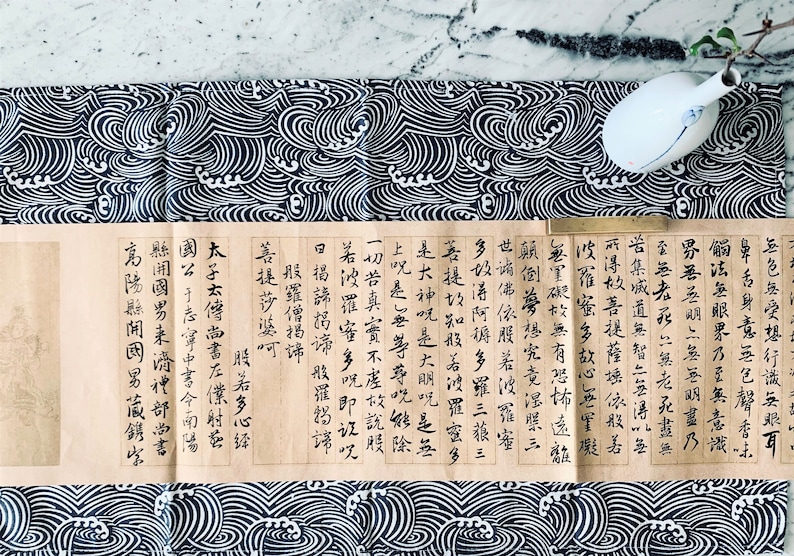 無色無受想行識無眼耳
鼻舌身意無色聲香味
觸法無眼界乃至無意識
界無無明亦無無明盡乃
至無老死亦無老死盡無
苦集滅道無智亦無得以無
所得故菩提薩埵依般若
波羅蜜多故心無罣礙
無罣礙故無有恐怖遠離
顛倒夢想究竟涅槃三
世諸佛依般若波羅蜜
多故得阿耨多羅三藐三
菩提故知般若波羅蜜多
是大神呪是大明呪是無
上呪是無等等呪能除
一切苦真實不虛故說般
若波羅蜜多呪即說呪
曰揭諦揭諦般羅揭諦
般羅僧揭諦
菩提莎婆呵
般若多心經
太子太傅尚書左僕射燕
國公于志寧中書令南陽
縣開國男來濟禮部尚書
高陽縣開國男